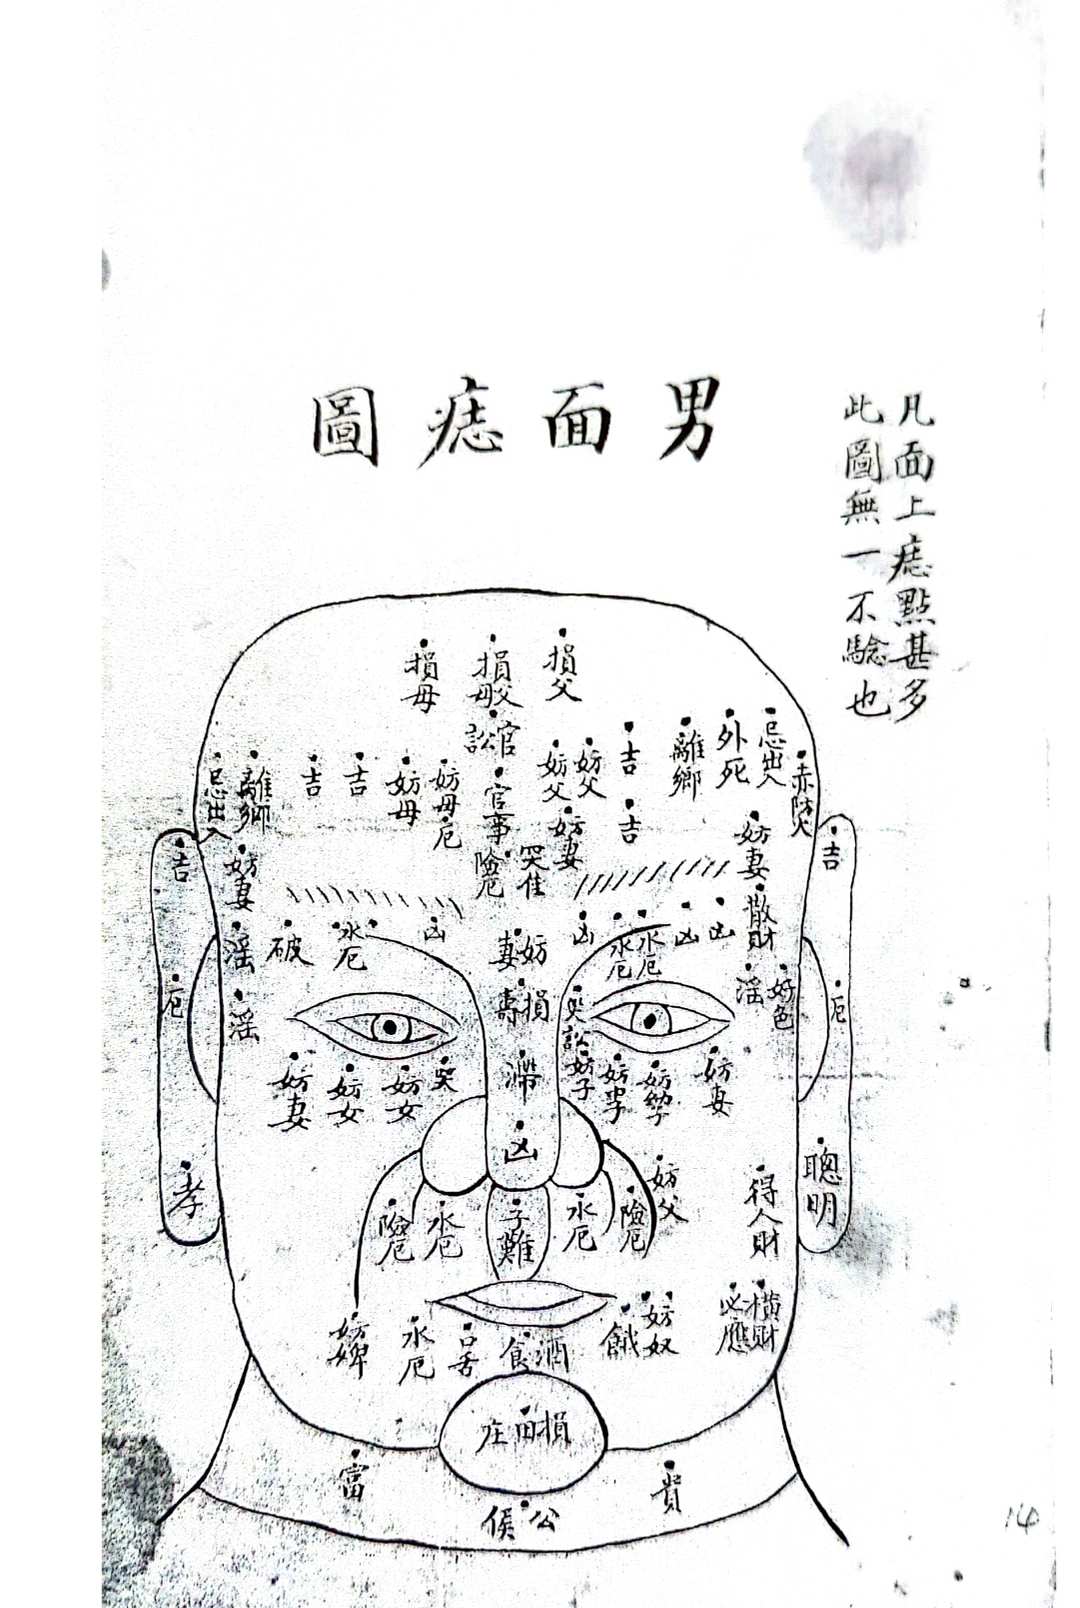 凡面上痣點甚多
此圖無一不驗也
男面痣圖
損父
損父母
損母
官訟
忌出入
外死
離鄉
吉
妨父
妨父
赤防火
官事
妨母厄
妨母
吉
吉
離鄉
忌出入
吉
妨妻
妨妻
險厄
吉
吉
妨妻
散財
凶
凶
水厄
水厄
凶
妨妻
凶
水厄
破
淫
好色
淫
厄
厄
損壽
淫
哭訟
滯
妨子
妨妻
哭
妨女
妨女
妨妻
凶
聰明
得人財
妨父
險厄
水厄
子難
水厄
險厄
孝
橫財
必應
妨奴
餓
酒食
口舌
水厄
妨婢
損田庄
貴
公侯
富
14